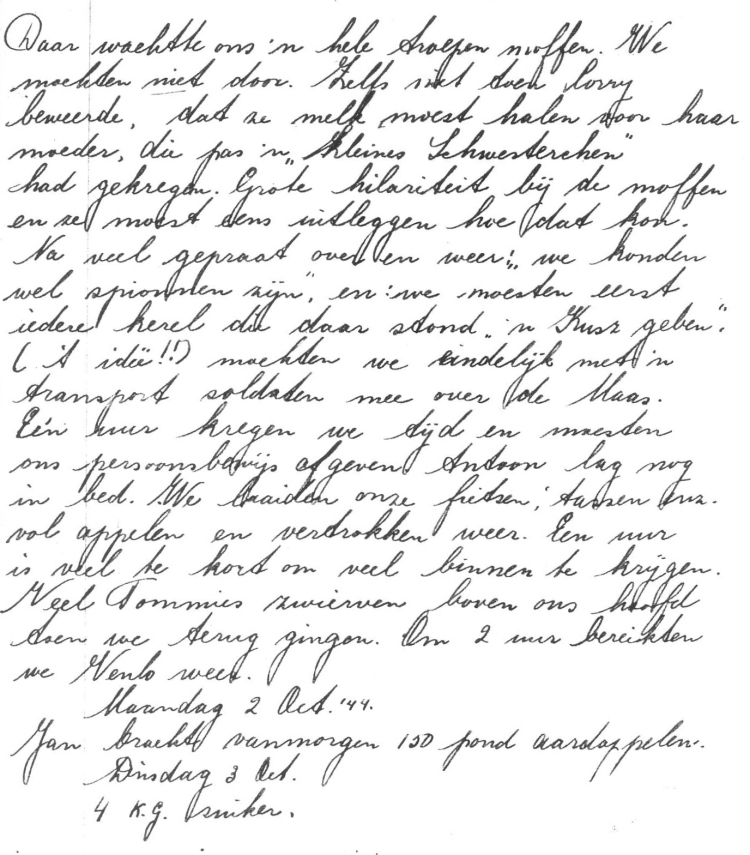 Daar wachtte ons 'n hele troepen moffen. We
mochten niet door. Zelfs niet toen Corry
beweerde, dat ze melk moest halen voor haar
moeder, die pas 'n „Kleines Schwesterchen"
had gekregen. Grote hilariteit bij de moffen
en ze moest eens uitleggen hoe dat kon.
Na veel gepraat over en weer: „we konden
wel spionnen zijn", en: we moesten eerst
iedere kerel die daar stond „'n Kusz geben".
('t idée!!) mochten we eindelijk met 'n
transport soldaten mee over de Maas.
Eén uur kregen we tijd en moesten
ons persoonsbewijs afgeven. Antoon lag nog
in bed. We laaiden onze fietsen, tassen enz.
vol appelen en vertrokken weer. Een uur
is veel te kort om veel binnen te krijgen.
Veel Tommies zwierven boven ons hoofd
toen we terug gingen. Om 2 uur bereikten
we Venlo weer.
Maandag 2 Oct. '44.
Jan bracht vanmorgen 150 pond aardappelen.
Dinsdag 3 Oct.
4 K.G. suiker.